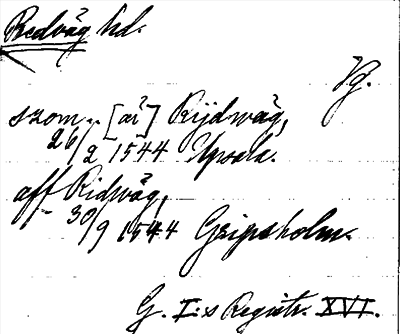 Redväg hd.
Vg.
szom [är] Rijdwäg,
26/2 1544 Upsala.
aff Ridwäg,
30/9 1544 Gripsholm.
G. I:s Registr. XVI.